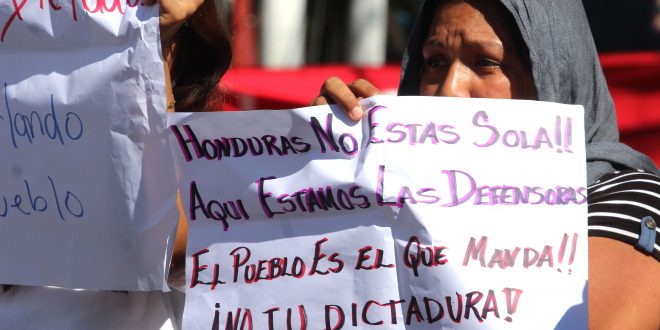 HONDURAS NO ESTAS SOLA!!
AQUI ESTAMOS LAS DEFENSORAS
EL PUEBLO ES EL QUE MANDA!!
¡NO TU DICTADURA!